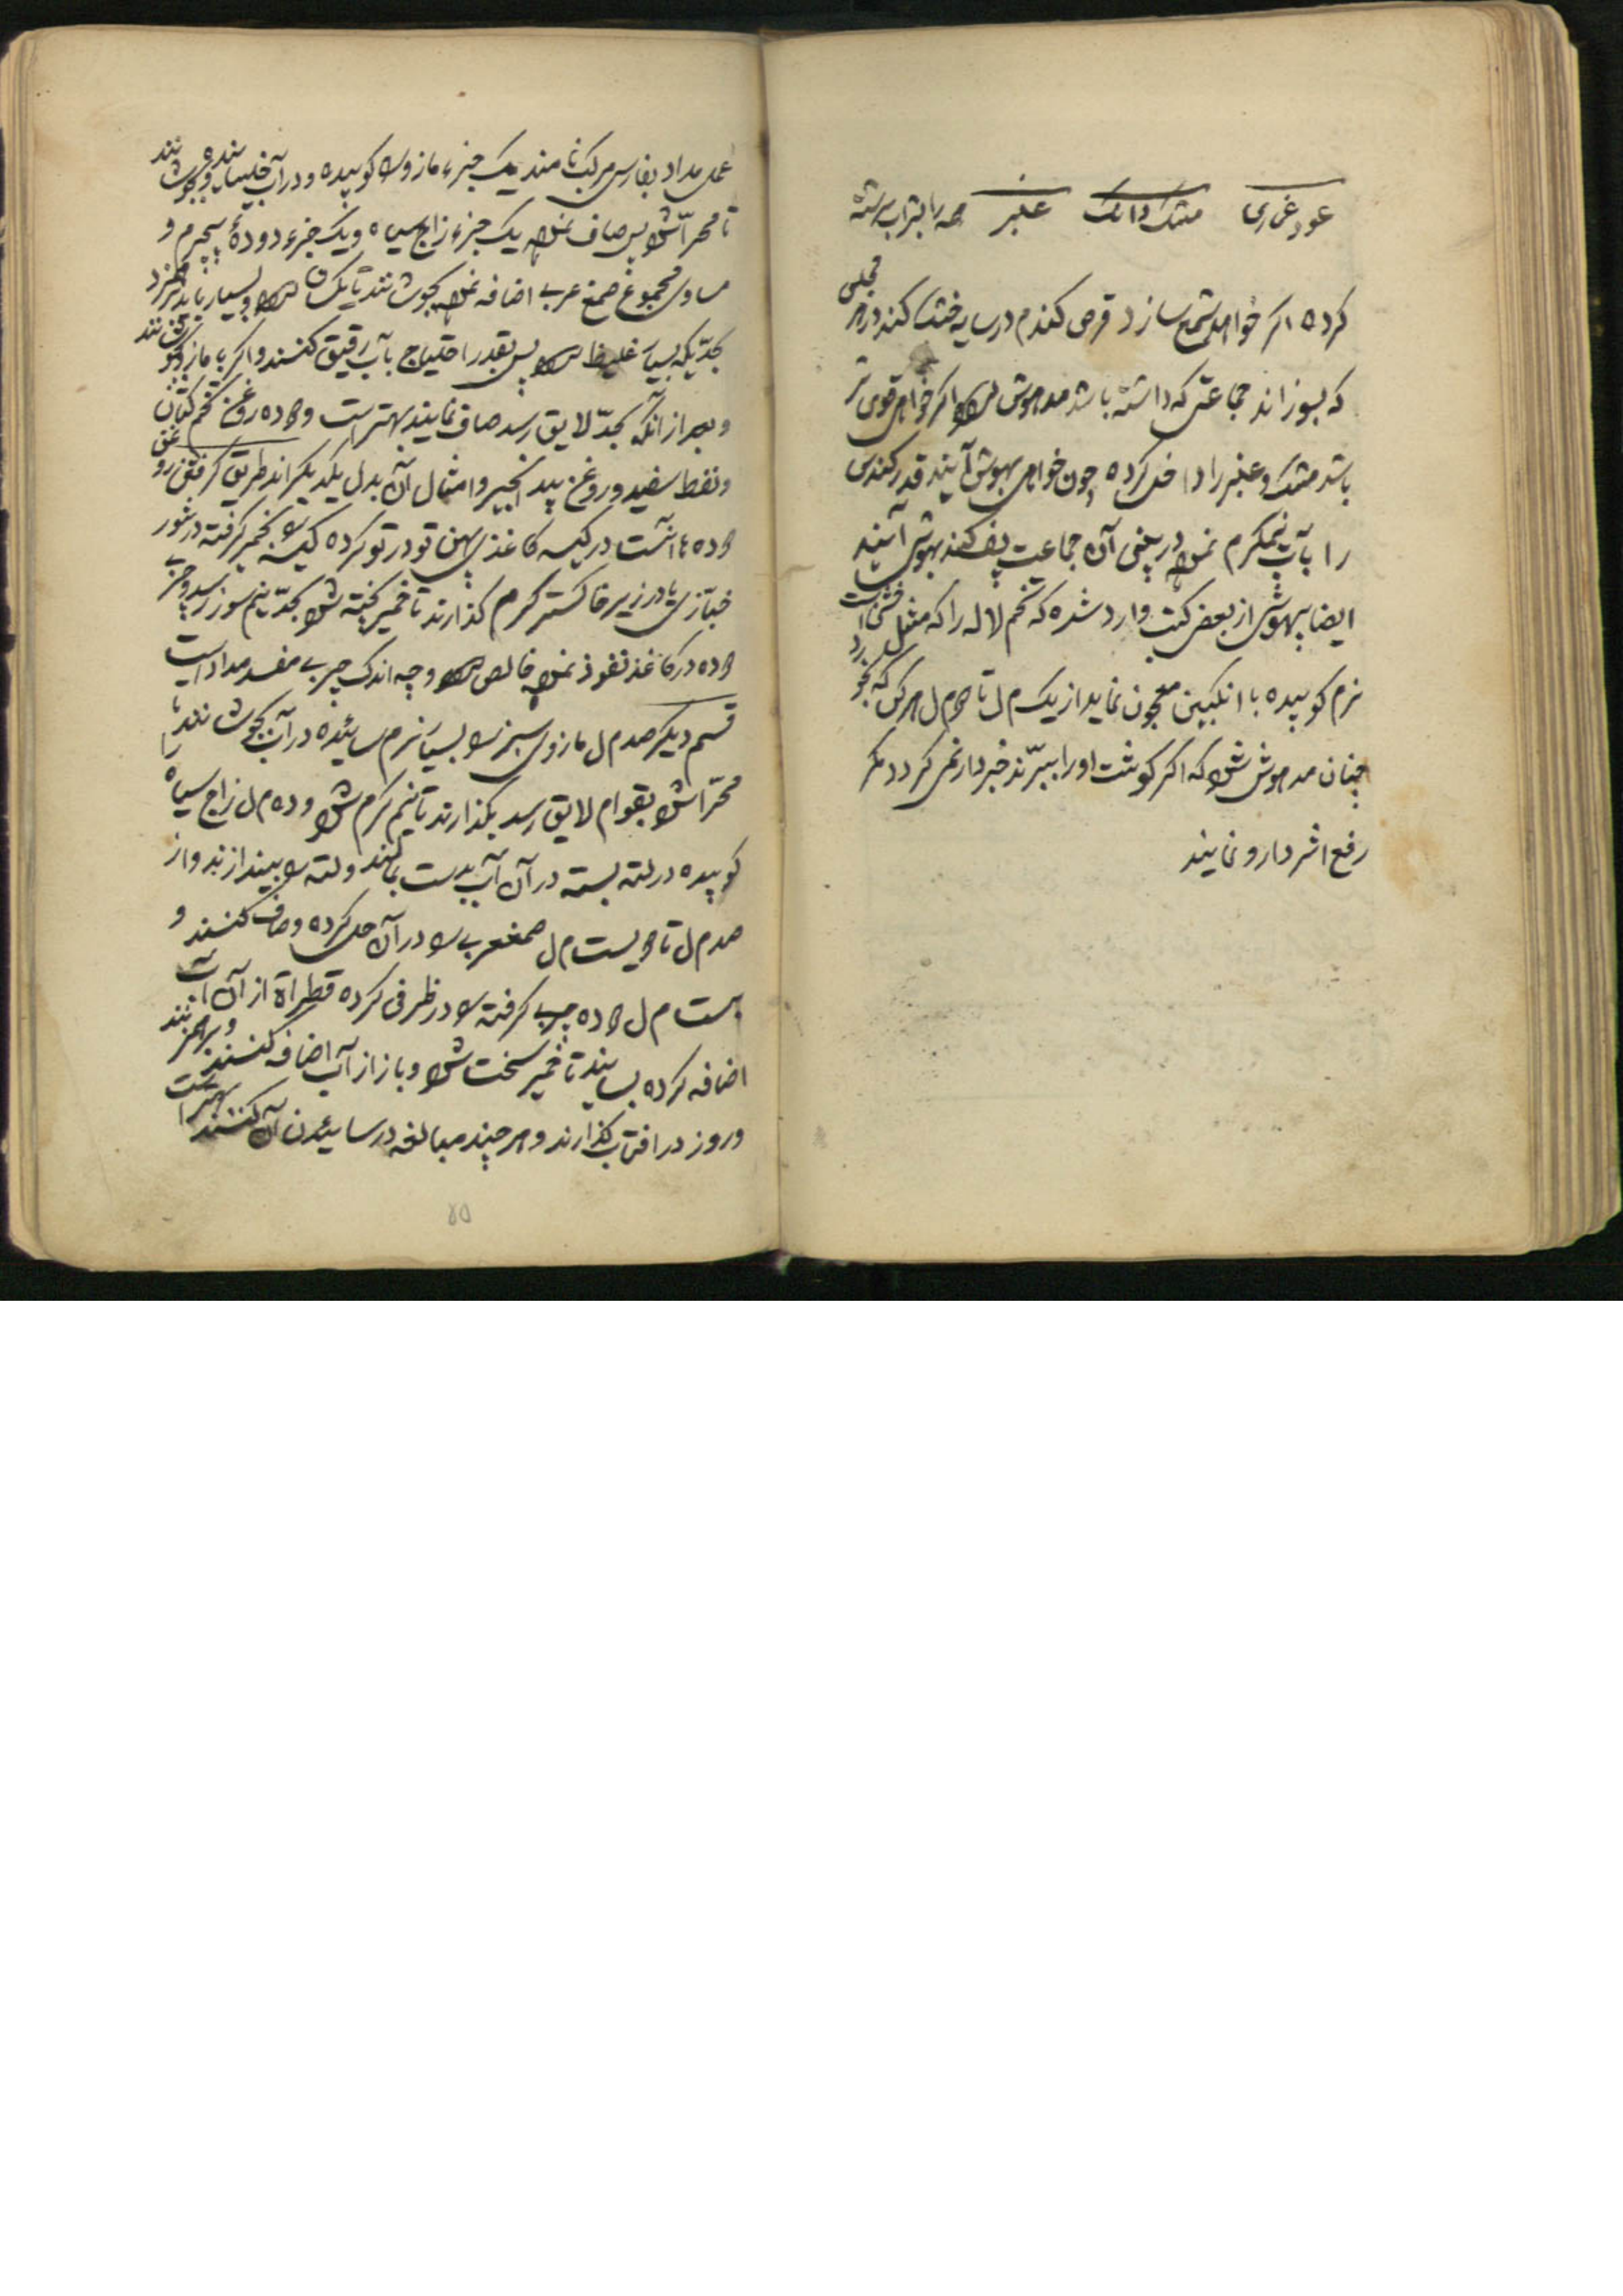 عود غماری مشک دانک عنبر همه را بشراب سرشته
کرده اگر خواهد شمع سازد قرص کند در سایه خشک کند در هر مجلسی
که بسوزاند جماعتی که داشته باشد مدهوش شود اگر خواهی قوی تر
باشد مشک و عنبر را داخل کرده چون خواهی بهوش آیند قدر کندس
را بآب نیمگرم نموده در بینی آن جماعت پف کند بهوش آیند
ایضا بیهوشی از بعض کتب وارد شده که تخم لاله را که مثل خشخاش است
نرم کوبیده با انگبین معجون نماید از یک م ل تا دو م ل هر کس که بخورد
چنان مدهوش شود که اگر گوشت او را ببرّند خبردار نمی گردد مگر
رفع اثر دارو نمایند
عمل مداد بفارسی مرکب نامند یک جزء مازو را کوبیده و در آب خیسانیده و بجوشانند
تا مهرّا شود پس صاف نموده یک جزء زاج سیاه و یک جزء دودهٔ بیچرم و
مساوی مجموع صمغ عربی اضافه نموده بجوشانند تا یکسان شود و بسیار باید بر هم زد
بحدّیکه بسیار غلیظ شود پس بقدر احتیاج بآب رقیق کنند و اگر با مازو بجوشانند
و بعد از آنکه بحدّ لایق رسد صاف نمایند بهتر است و دوده روغن تخم کتان
و نفط سفید و روغن بید انجیر و امثال آن بدل یکدیگر اند طریق گرفتن روغن
دوده ها آنست در کیسه کاغذی پهن تو در تو کرده کیسه را بخمیر گرفته در تنور
خبّازی یا در زیر خاکستر گرم گذارند تا خمیر پخته شود بحدّ نیم سوز رسد و چربی
دوده در کاغذ نفوذ نموده خالص شود و چه اندک چربی مفسد مداد است
قسم دیگر صد م ل مازوی سبز را بسیار نرم سائیده در آب بجوشانند تا
مهرّا شود بقوام لایق رسد بگذارند تا نیم گرم شود و ده م ل زاج سیاه را
کوبیده در لته بسته در آن آب بدست بمالند و لته را بیندازند و از
صد م ل تا دویست م ل صمغ عربی را در آن حل کرده و صاف کنند و
بیست م ل دوده چربی گرفته را در ظرفی کرده قطرهٔ از آن آب
اضافه کرده بسایند تا خمیر سخت شود و باز از آب اضافه کنند و بر هم زنند
و روز در افتاب گذارند و هر چند مبالغه در سائیدن آن کنند بهتر است
۴۵